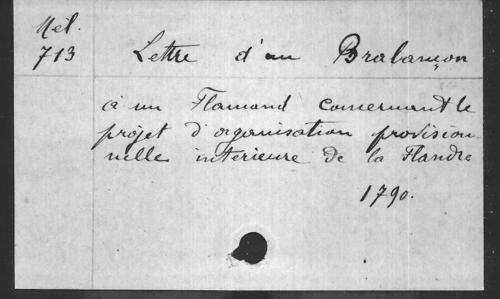 Mél.
713
Lettre d'un Brabançon
à un Flamand concernant le
projet d'organisation provision-
nelle interieure de la Flandre
1790.